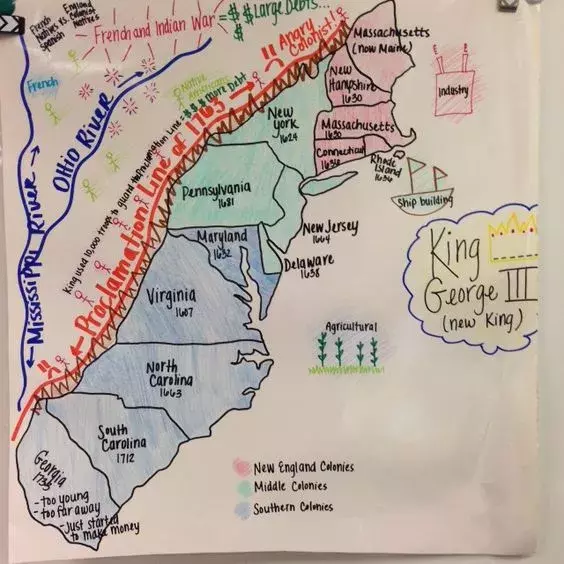 French
Natives vs.
Spanish
England
Colonist
Natives
French and Indian War
= $ $ Large Debts...
$
Angry
Colonist!!
French
Native
Americans
$$$ more Debt
Ohio River
Mississippi River
King used 10,000 troops to guard the Proclamation Line
Proclamation Line of 1763
Massachusetts
(now Maine)
New
Hampshire
1630
Massachusetts
1630
Connecticut
1636
Rhode
Island
1636
Industry
Ship building
New
York
1624
Pennsylvania
1681
New Jersey
1664
Delaware
1638
Maryland
1632
Virginia
1607
North
Carolina
1663
South
Carolina
1712
Georgia
- too young
- too far away
- Just started
to make money
King
George III
(new King)
Agricultural
New England Colonies
Middle Colonies
Southern Colonies